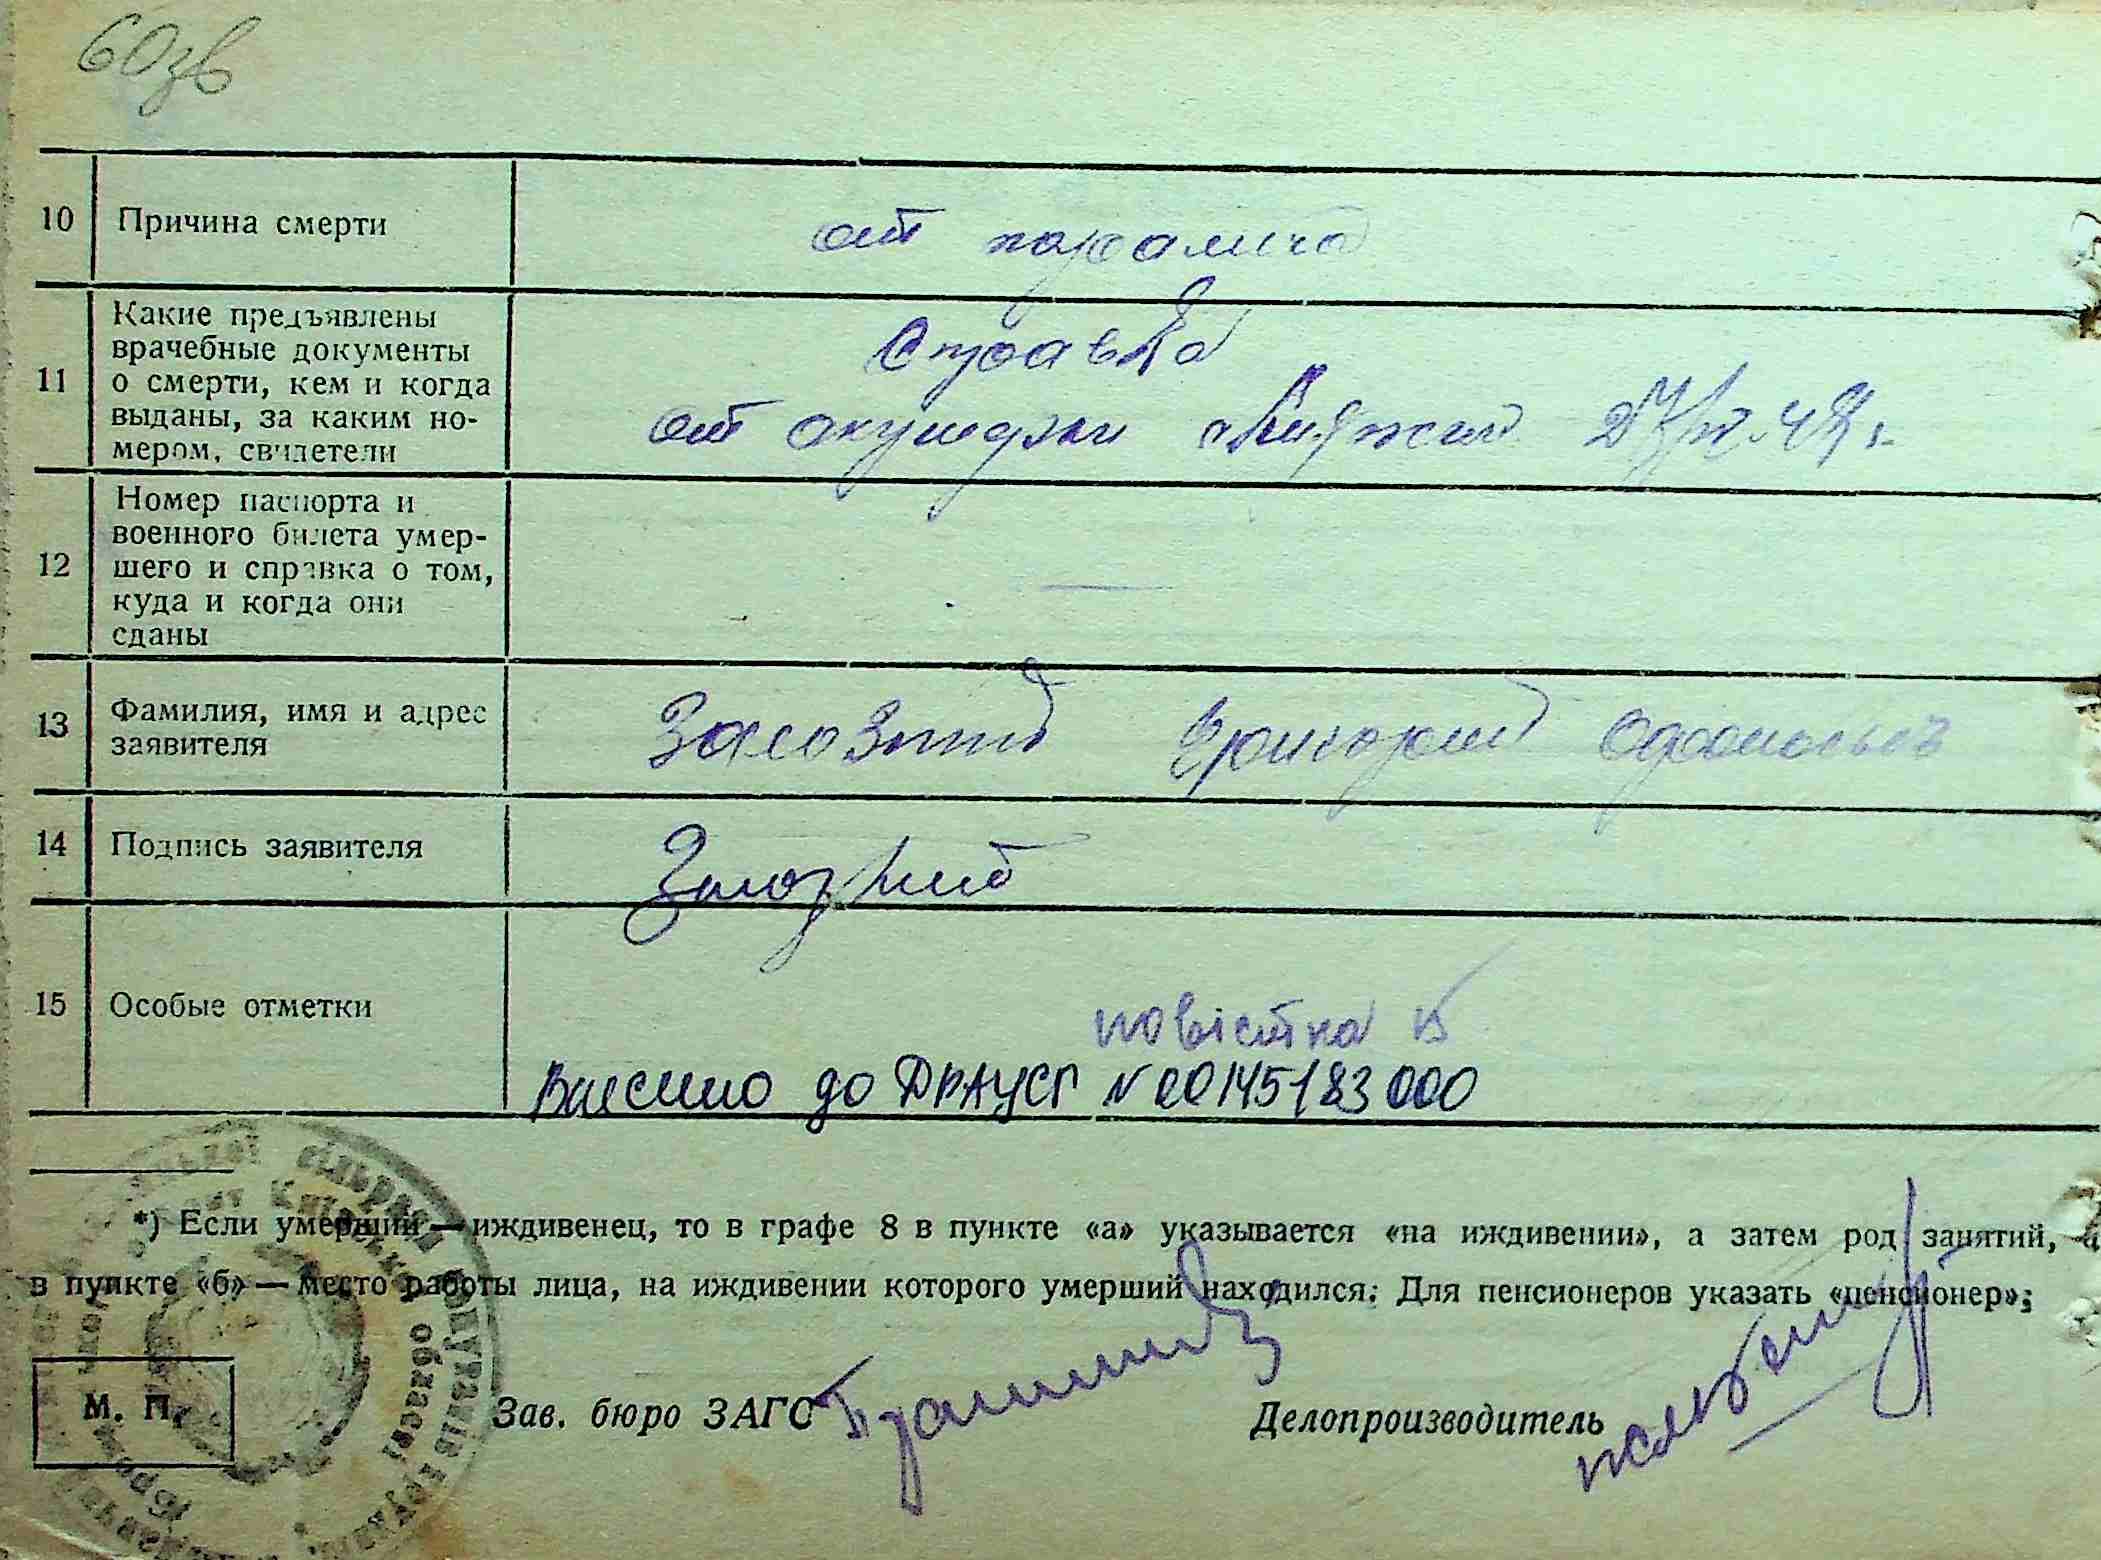 60зв
10 Причина смерти от паралича
11 Какие предъявлены
врачебные документы
о смерти, кем и когда
выданы, за каким но-
мером, свидетели
Справка
от акушерки
12 Номер паспорта и
военного билета умер-
шего и справка о том,
куда и когда они
сданы
—
13 Фамилия, имя и адрес
заявителя
Григорий
14 Подпись заявителя
15 Особые отметки
повістка
Внесено до ДРАЦСГ № 00145183000
*) Если умерший — иждивенец, то в графе 8 в пункте «а» указывается «на иждивении», а затем род занятий, а
в пункте «б» — место работы лица, на иждивении которого умерший находился. Для пенсионеров указать «пенсионер».
М. П.
Зав. бюро ЗАГС
Делопроизводитель